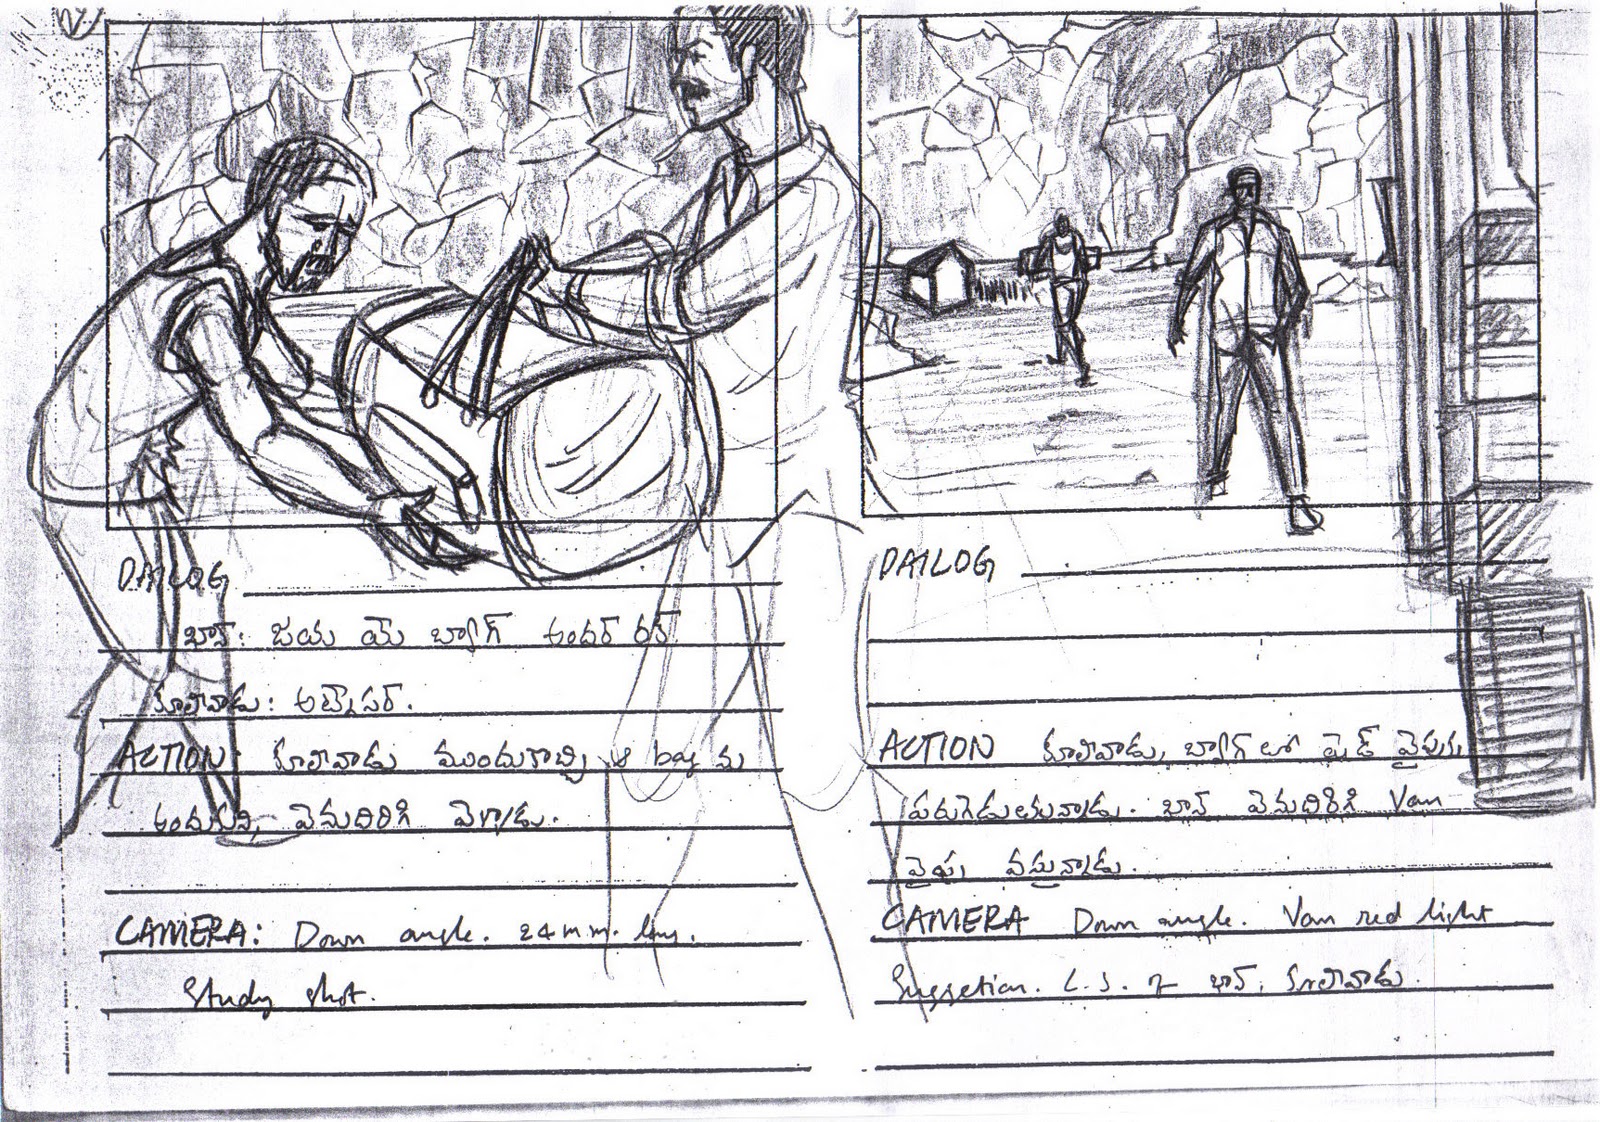 DAILOG
ఖాన్: జయ యె బ్యాగ్ అందర్ రక్
కూలివాడు: అట్నేసర్.
ACTION: కూలివాడు ముందుకొచ్చి ఆ bag ను
అందుకుని, వెనుదిరిగి వెళ్ళాడు.
CAMERA: Down angle. 24 m.m. lens.
Study shot.
DAILOG
ACTION కూలివాడు, బ్యాగ్ లో షెడ్ వైపుకు
పరుగెడుతున్నాడు. ఖాన్ వెనుదిరిగి Van
వైపు వస్తున్నాడు.
CAMERA Down angle. Van red light
Suggetion. L.S. of ఖాన్, కూలివాడు.